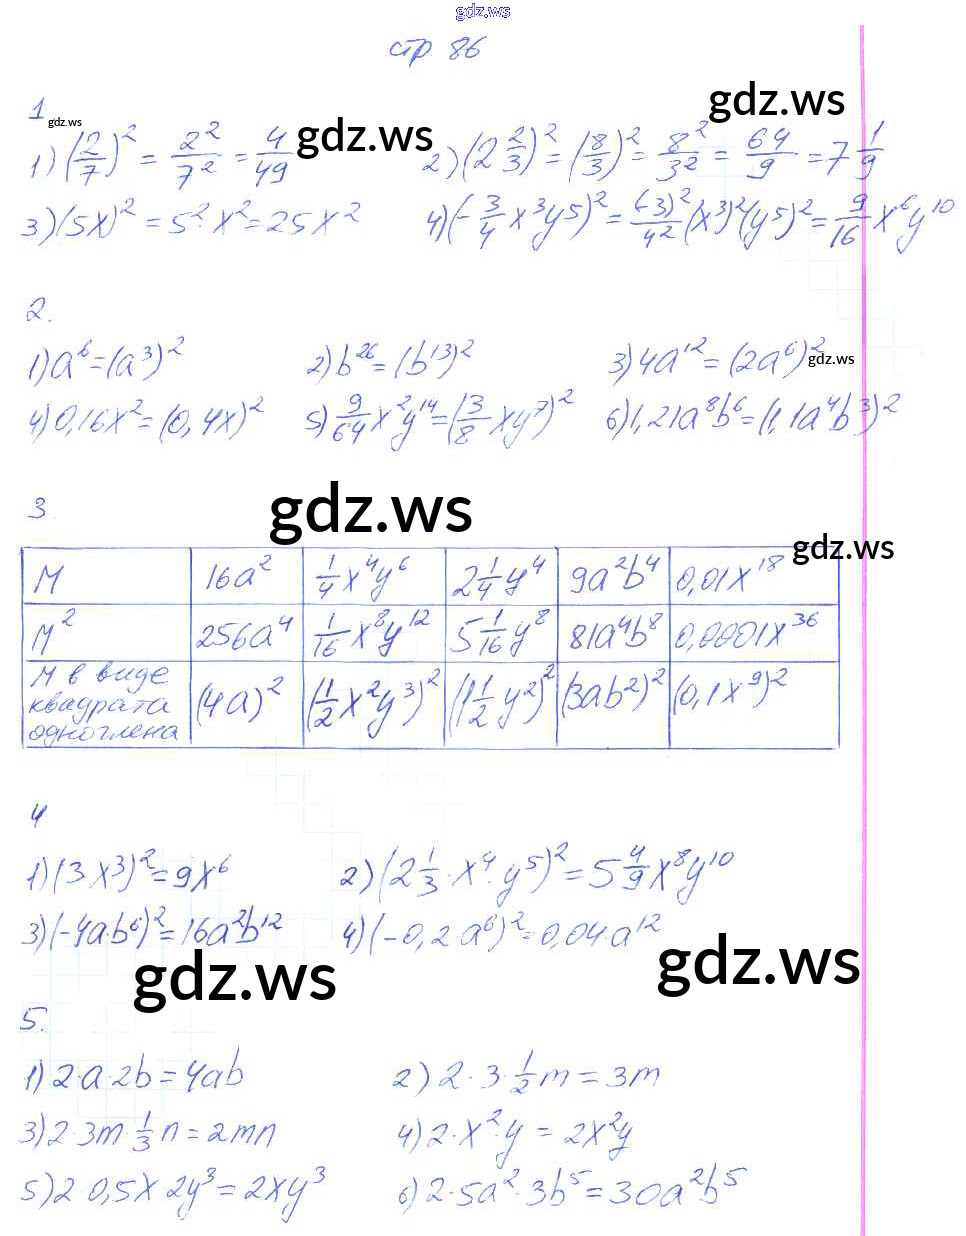 gdz.ws
стр 86
1 gdz.ws
1) (2/7)² = 2²/7² = 4/49 gdz.ws 2) (2 2/3)² = (8/3)² = 8²/3² = 64/9 = 7 1/9 gdz.ws
3) (5x)² = 5²·x² = 25x² 4) (-3/4 x³y⁵)² = (-3)²/4² (x³)²(y⁵)² = 9/16 x⁶y¹⁰
2.
1) a⁶ = (a³)² 2) b²⁶ = (b¹³)² 3) 4a¹² = (2a⁶)² gdz.ws
4) 0,16x² = (0,4x)² 5) 9/64 x²y¹⁴ = (3/8 xy⁷)² 6) 1,21a⁸b⁶ = (1,1a⁴b³)²
3 gdz.ws
gdz.ws
M 16a² 1/4 x⁴y⁶ 2 1/4 y⁴ 9a²b⁴ 0,01x¹⁸
M² 256a⁴ 1/16 x⁸y¹² 5 1/16 y⁸ 81a⁴b⁸ 0,0001x³⁶
M в виде
квадрата
одночлена (4a)² (1/2 x²y³)² (1 1/2 y²)² (3ab²)² (0,1x⁹)²
4
1) (3x³)² = 9x⁶ 2) (2 1/3·x⁴·y⁵)² = 5 4/9 x⁸y¹⁰
3) (-4a·b⁶)² = 16a²b¹² 4) (-0,2·a⁶)² = 0,04·a¹²
gdz.ws gdz.ws
5.
1) 2·a·2b = 4ab 2) 2·3·1/2 m = 3m
3) 2·3m·1/3 n = 2mn 4) 2·x²·y = 2x²y
5) 2 0,5x·2y³ = 2xy³ 6) 2·5a²·3b⁵ = 30a²b⁵